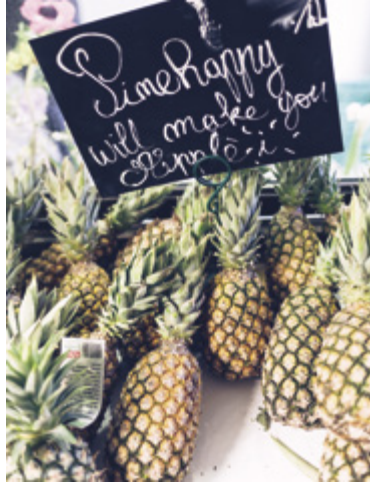 Pinehappy
will make you